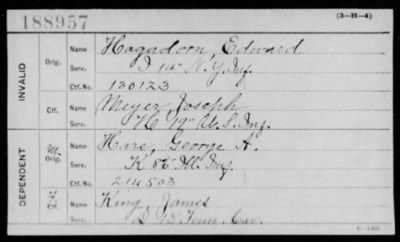 188957
(3-H-4)
INVALID
Orig.
Name Hagadorn, Edward
Serv. I 14" N.Y. Inf.
Ctf. No. 130123
Ctf.
Name Meyer, Joseph
Serv. H 19" U.S. Inf.
DEPENDENT
M. Orig.
Name Hare, George A.
Serv. K 86 Ill. Inf.
Ctf. No. 214503
Ctf.
Name King, James
10 Tenn. Cav.